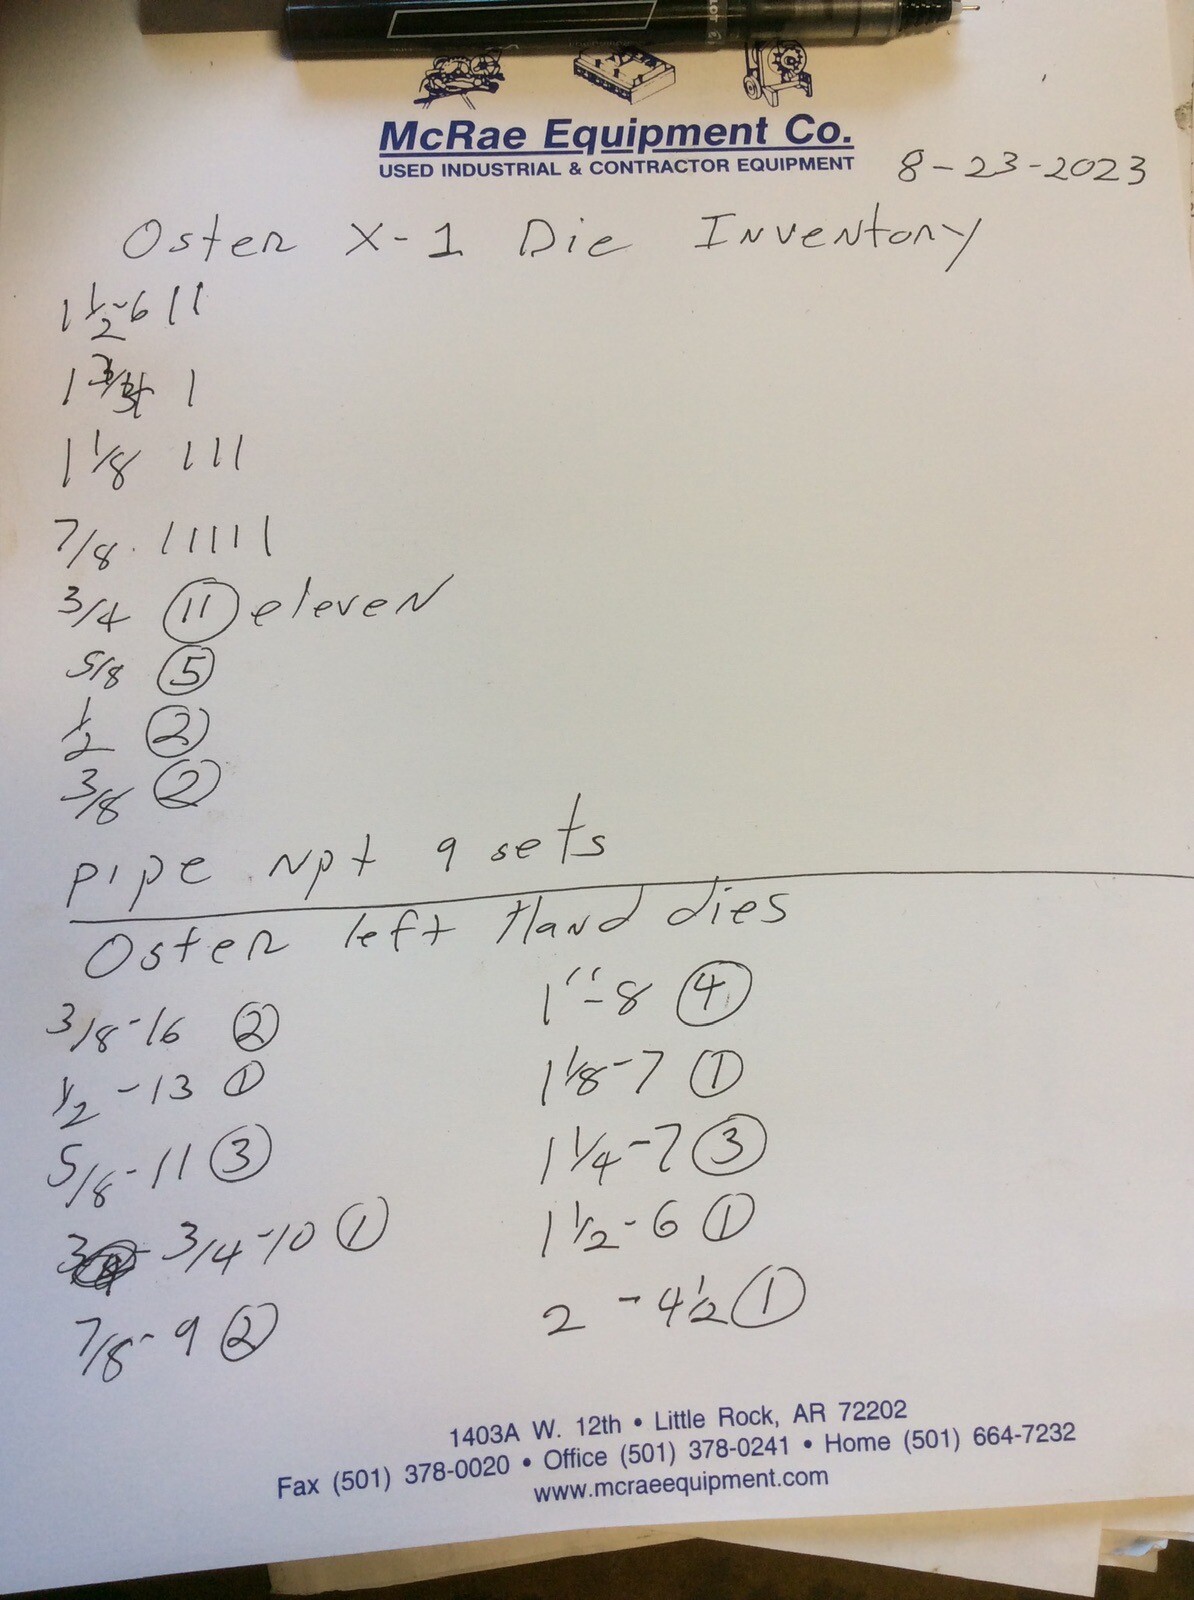 McRae Equipment Co.
USED INDUSTRIAL & CONTRACTOR EQUIPMENT
8-23-2023
Oster X-1 Die Inventory
1 1/2-6 11
1 1
1 1/8 111
7/8 11111
3/4 11 eleven
5/8 5
1/2 2
3/8 2
PIPE Npt 9 sets
Oster left Hand dies
3/8-16 2
1/2-13 1
5/8-11 3
3/4-10 1
7/8-9 2
1"-8 4
1 1/8-7 1
1 1/4-7 3
1 1/2-6 1
2 - 4 1/2 1
1403A W. 12th • Little Rock, AR 72202
Fax (501) 378-0020 • Office (501) 378-0241 • Home (501) 664-7232
www.mcraeequipment.com